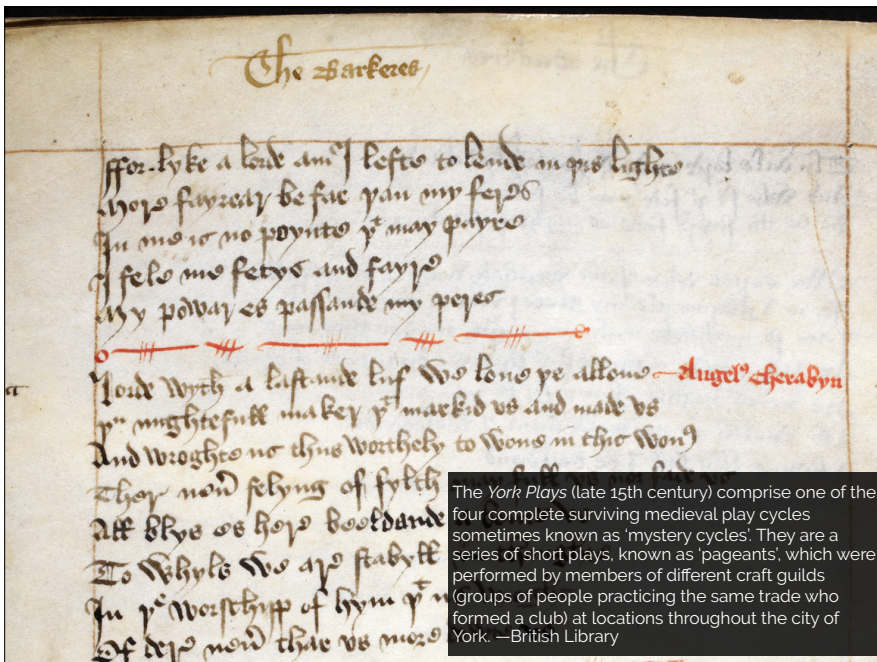 The Barkeres
ffor-lyke a lorde am I lefte to lende in þis lighte
More fayrear be far þan my feres
In me is no poynte þt may payre
I fele me fetys and fayre
My powar es passande my peres
lorde wyth a lastande luf we loue þe allone Angels Cherabyn
þu mightefull maker þt markid vs and made vs
And wroghte us thus worthely to wone in this wone
Ther neuer felyng of fylth may full vs nor fade vs
All blys es here beeldande
To whyls we are stabyll
In þe worschipp of hym þt
Of dere neuer thar vs more
The York Plays (late 15th century) comprise one of the
four complete surviving medieval play cycles
sometimes known as ‘mystery cycles’. They are a
series of short plays, known as ‘pageants’, which were
performed by members of different craft guilds
(groups of people practicing the same trade who
formed a club) at locations throughout the city of
York. —British Library